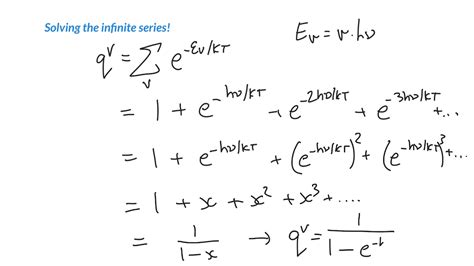 Solving the infinite series!
E_v = v.hν
q^v = Σ_v e^{-εv/kT}
= 1 + e^{-hν/kT} + e^{-2hν/kT} + e^{-3hν/kT} + ...
= 1 + e^{-hν/kT} + (e^{-hν/kT})^2 + (e^{-hν/kT})^3 + ...
= 1 + x + x^2 + x^3 + ....
= 1/(1-x) → q^v = 1/(1-e^{-h